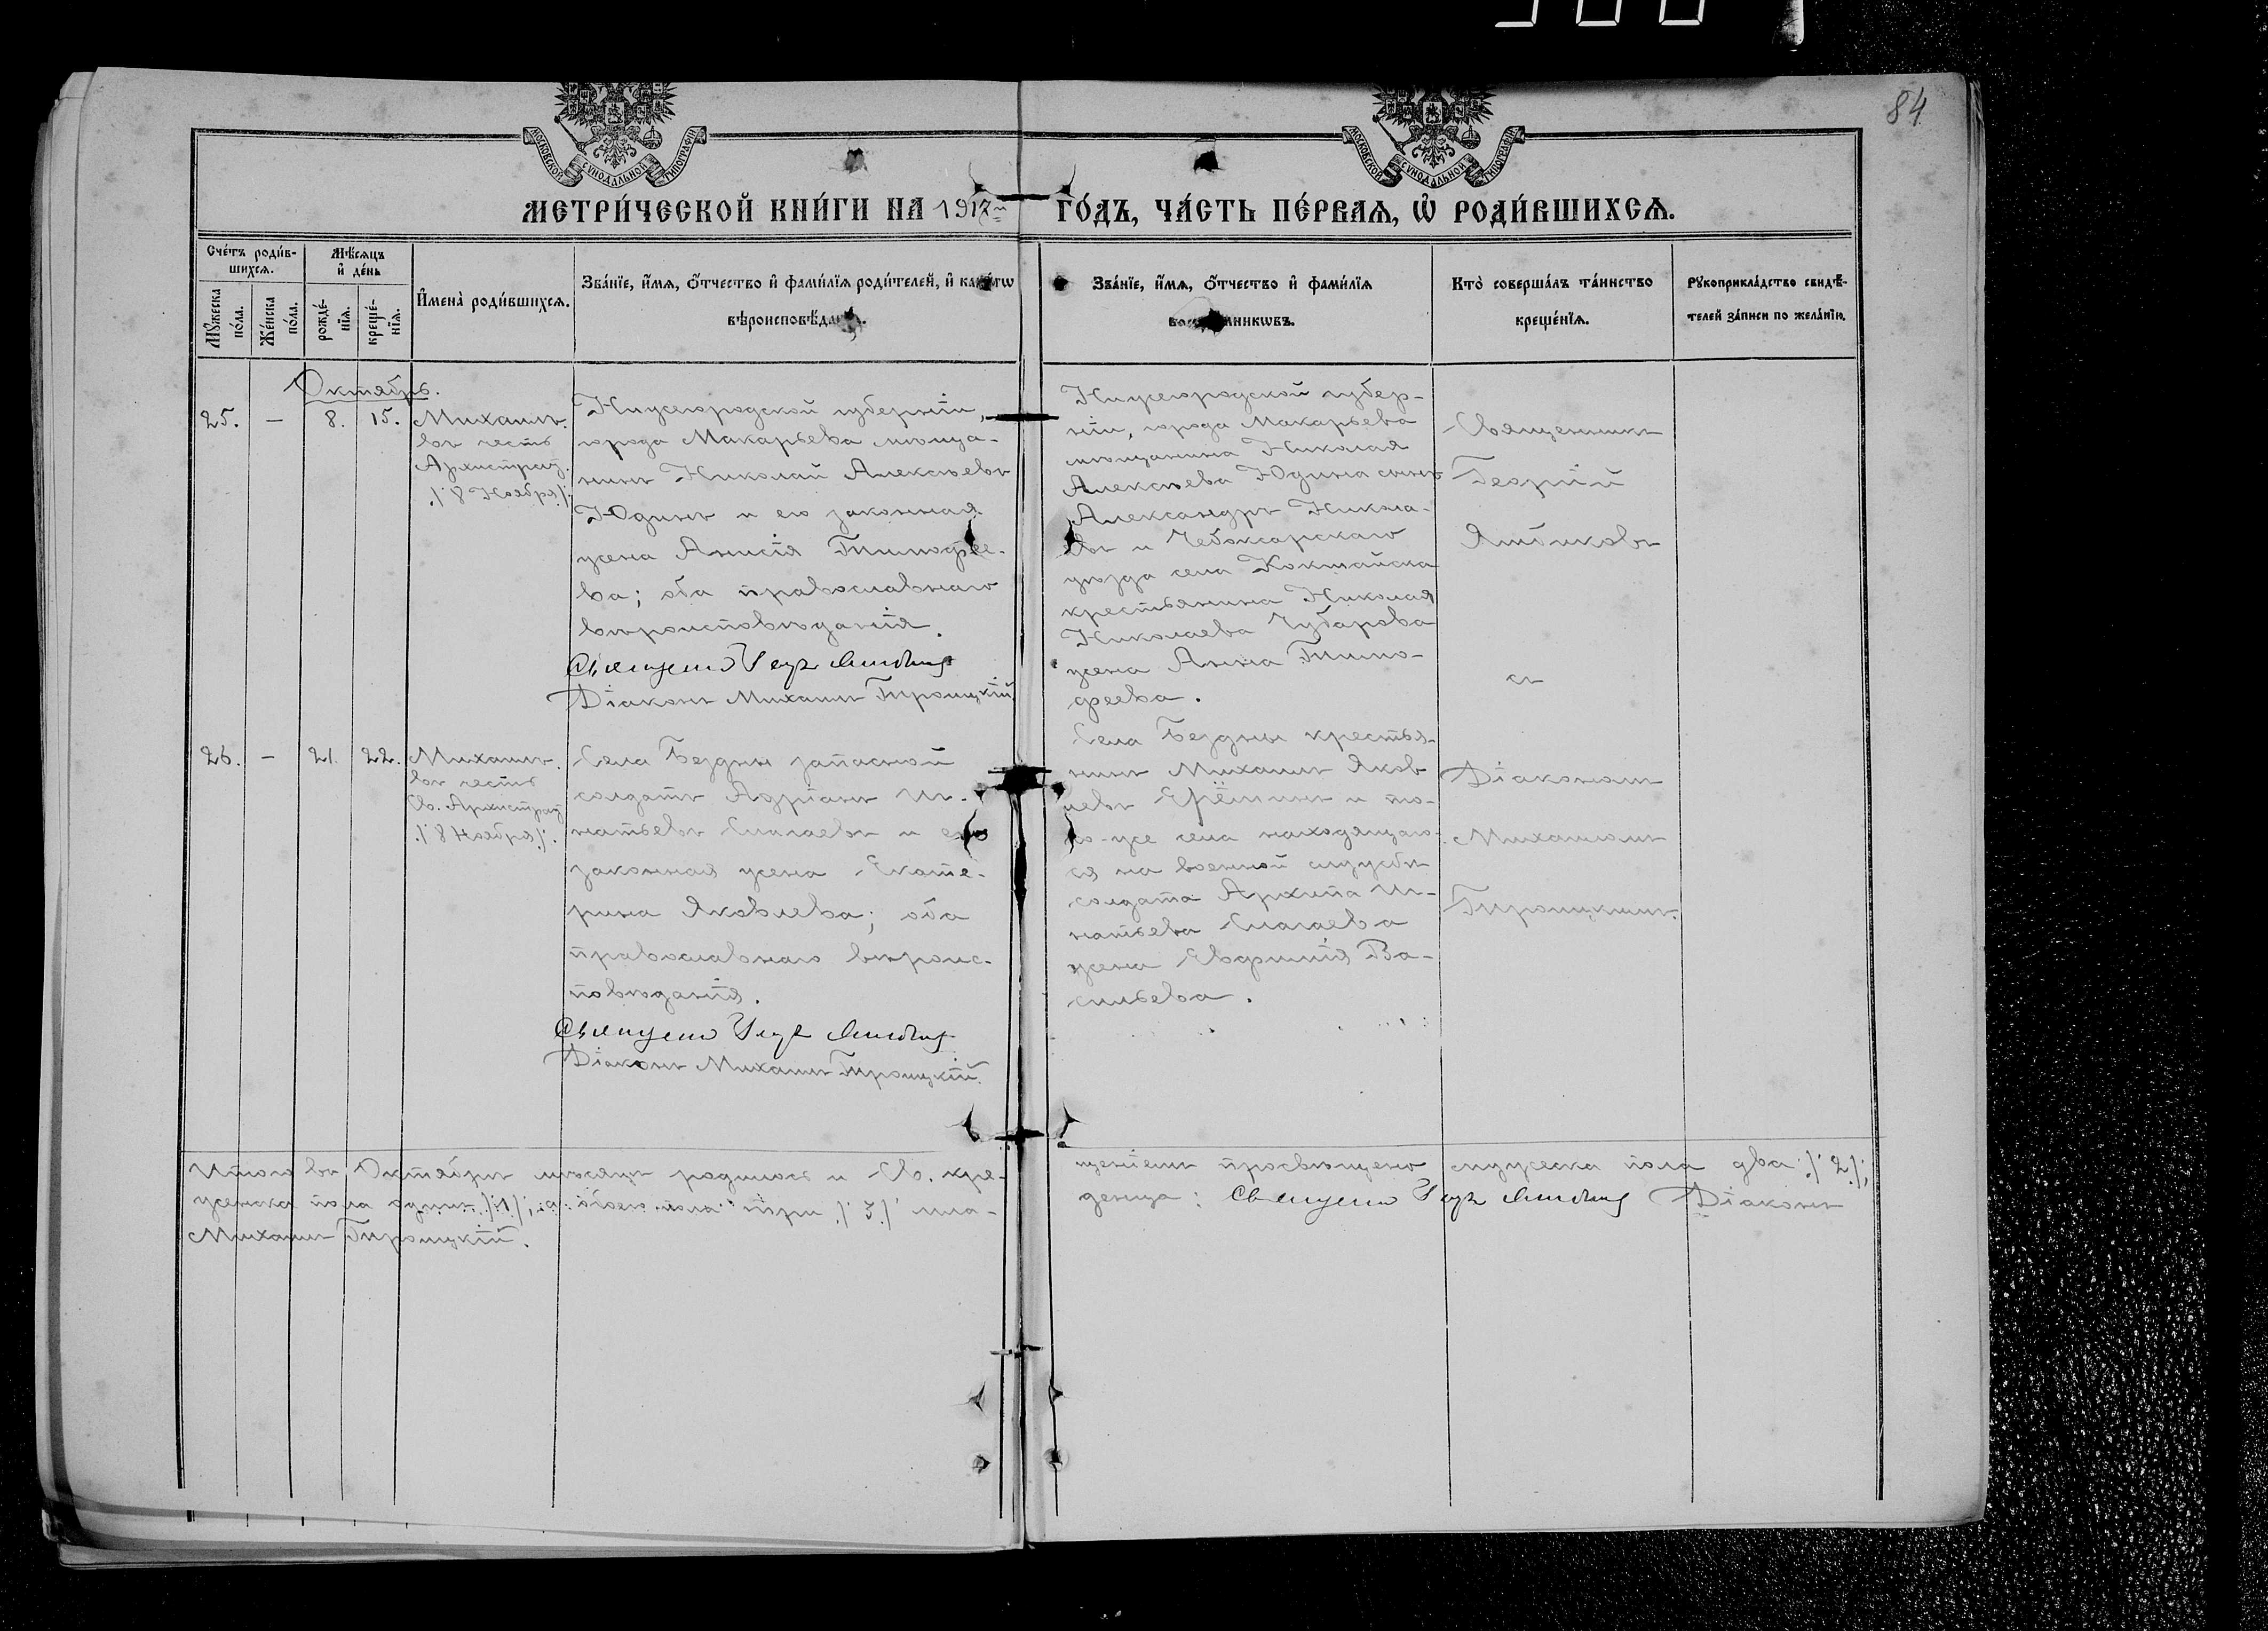 84
МОСКОВСКОЙ СѴНОДАЛЬНОЙ ТИПОГРАФІИ
МОСКОВСКОЙ СѴНОДАЛЬНОЙ ТИПОГРАФІИ
МЕТРИ́ЧЕСКОЙ КНИ́ГИ НА 1917й ГО́ДЪ, ЧА́СТЬ ПЕ́РВАѦ, Ѡ РОДИ́ВШИХСѦ.
Сче́тъ роди́в-
шихсѧ.
Мꙋ́жеска
по́ла.
Же́нска
по́ла.
Мѣ́сѧцъ
и҆ де́нь
рожде́-
нїѧ.
креще́-
нїѧ.
И҆мена̀ роди́вшихсѧ.
Зва́нїе, и҆́мѧ, ѻ҆́тчество и҆ фами́лїѧ роди́телей, и҆ како́гѡ
вѣроисповѣ́данїѧ.
Зва́нїе, и҆́мѧ, ѻ҆́тчество и҆ фами́лїѧ
воспрїе́мникѡвъ.
Кто̀ соверша́лъ та́инство
креще́нїѧ.
Рꙋкоприкла́дство свидѣ́-
телей за́писи по жела́нїю.
Октябрь.
25.
—
8.
15.
Михаилъ.
въ честь
Архистрат.
./8 Ноября/.
Нижегородской губерніи,
города Макарьева мѣща-
нинъ Николай Алексѣевъ
Юдинъ и его законная
жена Анисія Тимофее-
ва; оба православнаго
вѣроисповѣданія.
Діаконъ Михаилъ Троицкій.
Нижегородской губер-
ніи, города Макарьева
мѣщанина Николая
Алексѣева Юдина сынъ
Александръ Никола-
евъ и Чебоксарскаго
уѣзда села Кокшайска
крестьянина Николая
Николаева Чубарова
жена Анна Тимо-
феева.
Священникъ
Георгій
съ
26.
—
21.
22.
Михаилъ.
въ честь
Св. Архистрат.
./8 Ноября/.
Села Бездны запасной
солдатъ Адріанъ Иг-
натьевъ Слагаевъ и его
законная жена Екате-
рина Яковлева; оба
православнаго вѣроис-
повѣданія.
Діаконъ Михаилъ Троицкій.
Села Бездны крестья-
нинъ Михаилъ Яков-
левъ Ерёминъ и то-
го-же села находящаго-
ся на военной службѣ
солдата Архипа Иг-
натьева Слагаева
жена Евфимія Ва-
сильева.
Діакономъ
Михаиломъ
Троицкимъ.
Итого въ Октябрѣ мѣсяцѣ родилось и Св. кре-
щеніемъ просвѣщено мужеска пола два ./2/.,
женска пола одинъ ./1/.; а обоего пола три ./3/. мла-
денца: Діаконъ
Михаилъ Троицкій.